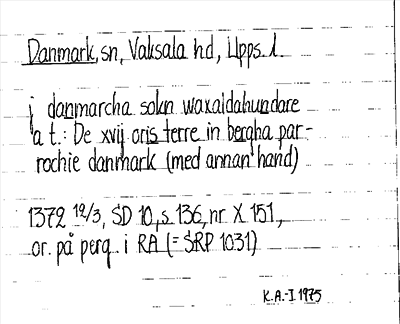 Danmark, sn, Vaksala hd, Upps. l.
j danmarcha sokn waxaldahundare
a t.: De xvij oris terre in bergha par-
rochie danmark (med annan hand)
1372 12/3, SD 10, s. 136, nr X 151,
or. på perg. i RA (= SRP 1031)
K.A.-I 1975